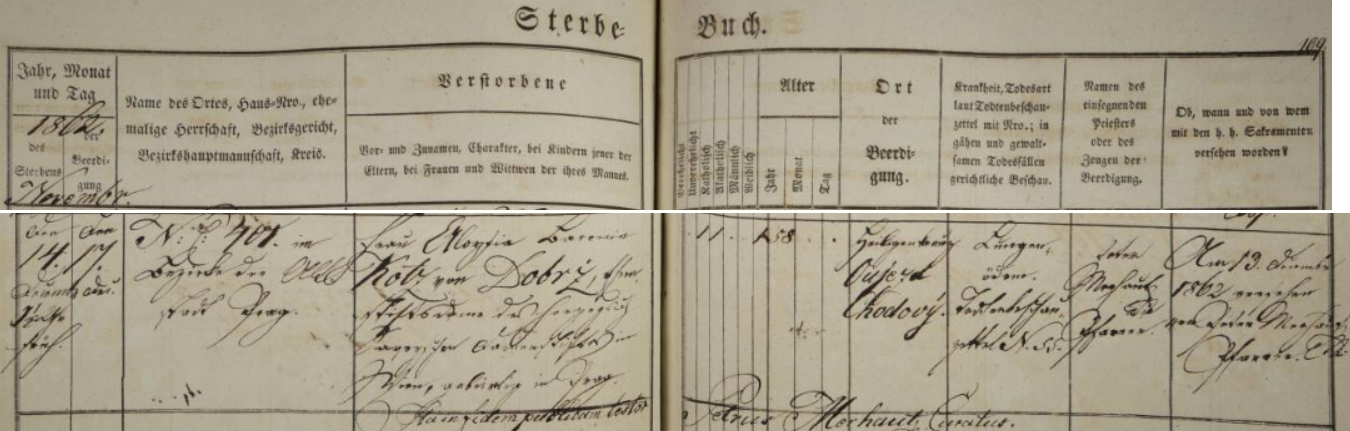 Sterbe-
Buch.
109
Jahr, Monat
und Tag
1862.
des
Sterbens
der
Beerdi-
gung
Novembr.
Name des Ortes, Haus-Nro., ehe-
malige Herrschaft, Bezirksgericht,
Bezirkshauptmannschaft, Kreis.
Verstorbene
Vor- und Zunamen, Charakter, bei Kindern jener der
Eltern, bei Frauen und Wittwen der ihres Mannes.
Verehelicht
Unverehelicht
Katholisch
Akatholisch
Männlich
Weiblich
Alter
Jahr
Monat
Tag
Ort
der
Beerdi-
gung.
Krankheit, Todesart
laut Todtenbeschau-
zettel mit Nro.; in
gähen und gewalt-
samen Todesfällen
gerichtliche Beschau.
Namen des
einsegnenden
Priesters
oder des
Zeugen der
Beerdigung.
Ob, wann und von wem
mit den h. h. Sakramenten
versehen worden?
den den
14. 17.
früh.
N: C: 401. im
Bezirke der Alt
stadt Prag.
Frau Aloysia Baronin
Kotz von Dobrž,
Stiftsdame des herzoglich
in
Wien, gebürtig in Prag.
Ita in fidem publicam testor
1 1 58
Oujezd
Chodový.
Lungen-
ödem.
Todtenbeschau-
zettel N. 55.
Peter
Merhaut
Pfarrer.
Am 13.
1862 versehen
von Peter Merhaut
Pfarrer.
Petrus Merhaut, Curatus.